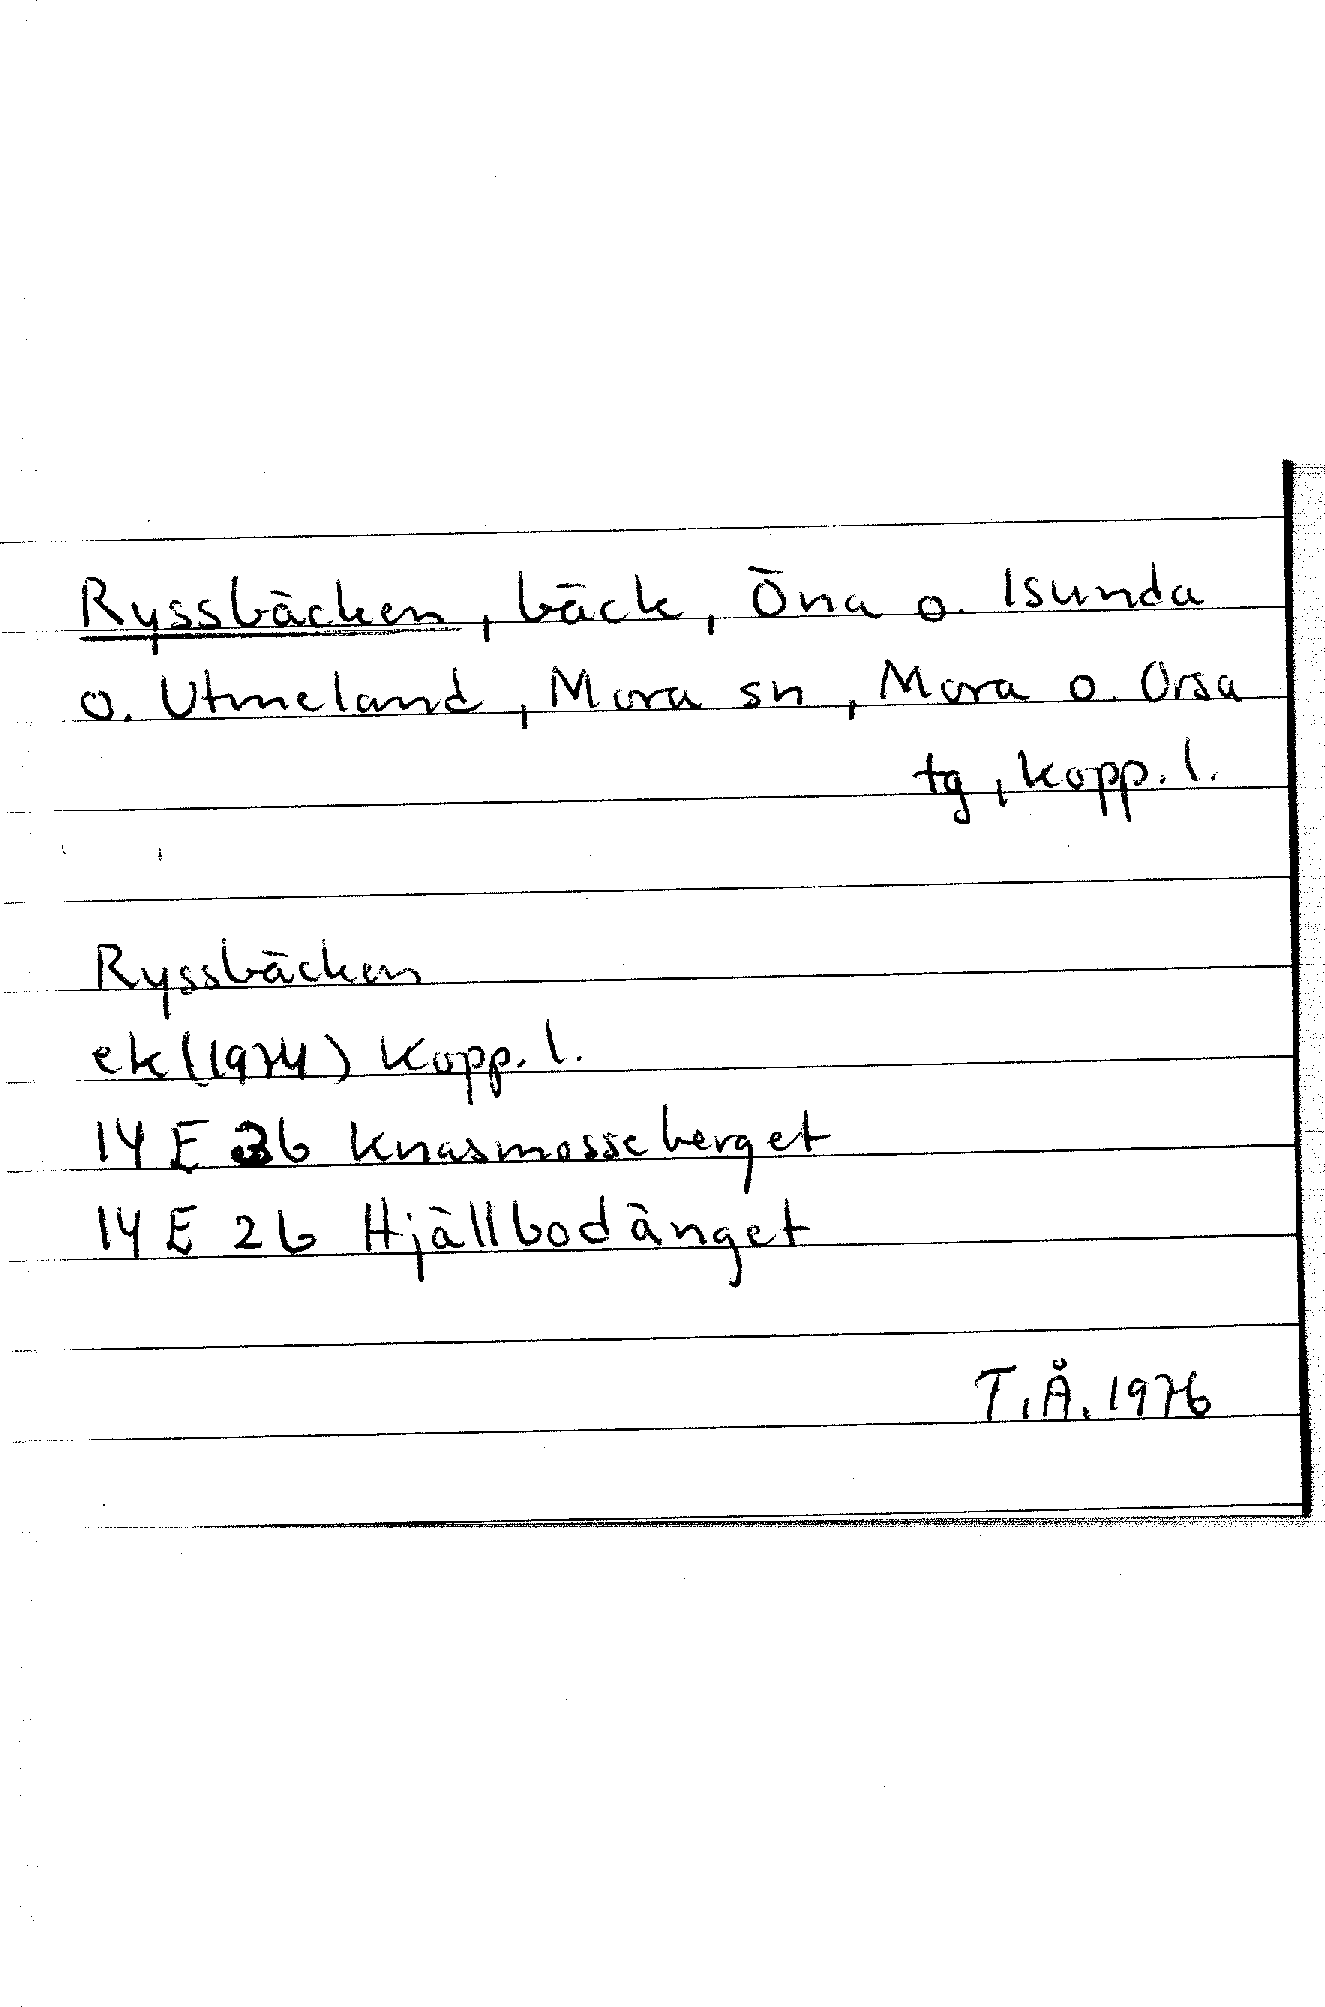 Ryssbäcken, bäck, Öna o. Isunda
o. Utmeland, Mora sn, Mora o. Orsa
tg, Kopp. l.
Ryssbäcken
ek (1974) Kopp. l.
14 E 3b Knasmosseberget
14 E 2b Hjällbodänget
T.Å. 1976